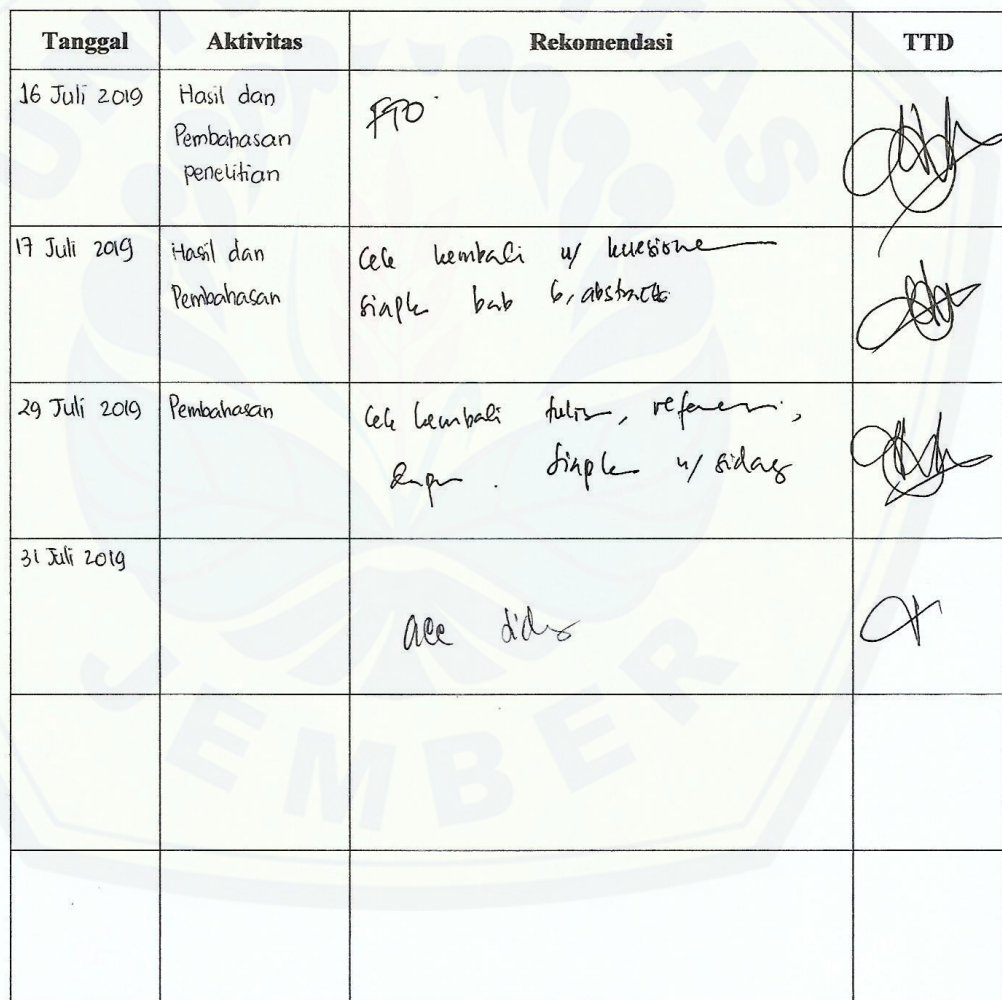 Tanggal Aktivitas Rekomendasi TTD
16 Juli 2019 Hasil dan
Pembahasan
penelitian
17 Juli 2019 Hasil dan Cek kembali u/ kuesioner
Pembahasan siapkan bab 6, abstrak
29 Juli 2019 Pembahasan Cek kembali tulisan, referensi,
siapkan u/ sidang
31 Juli 2019
acc sidang
UNIVERSITAS
JEMBER